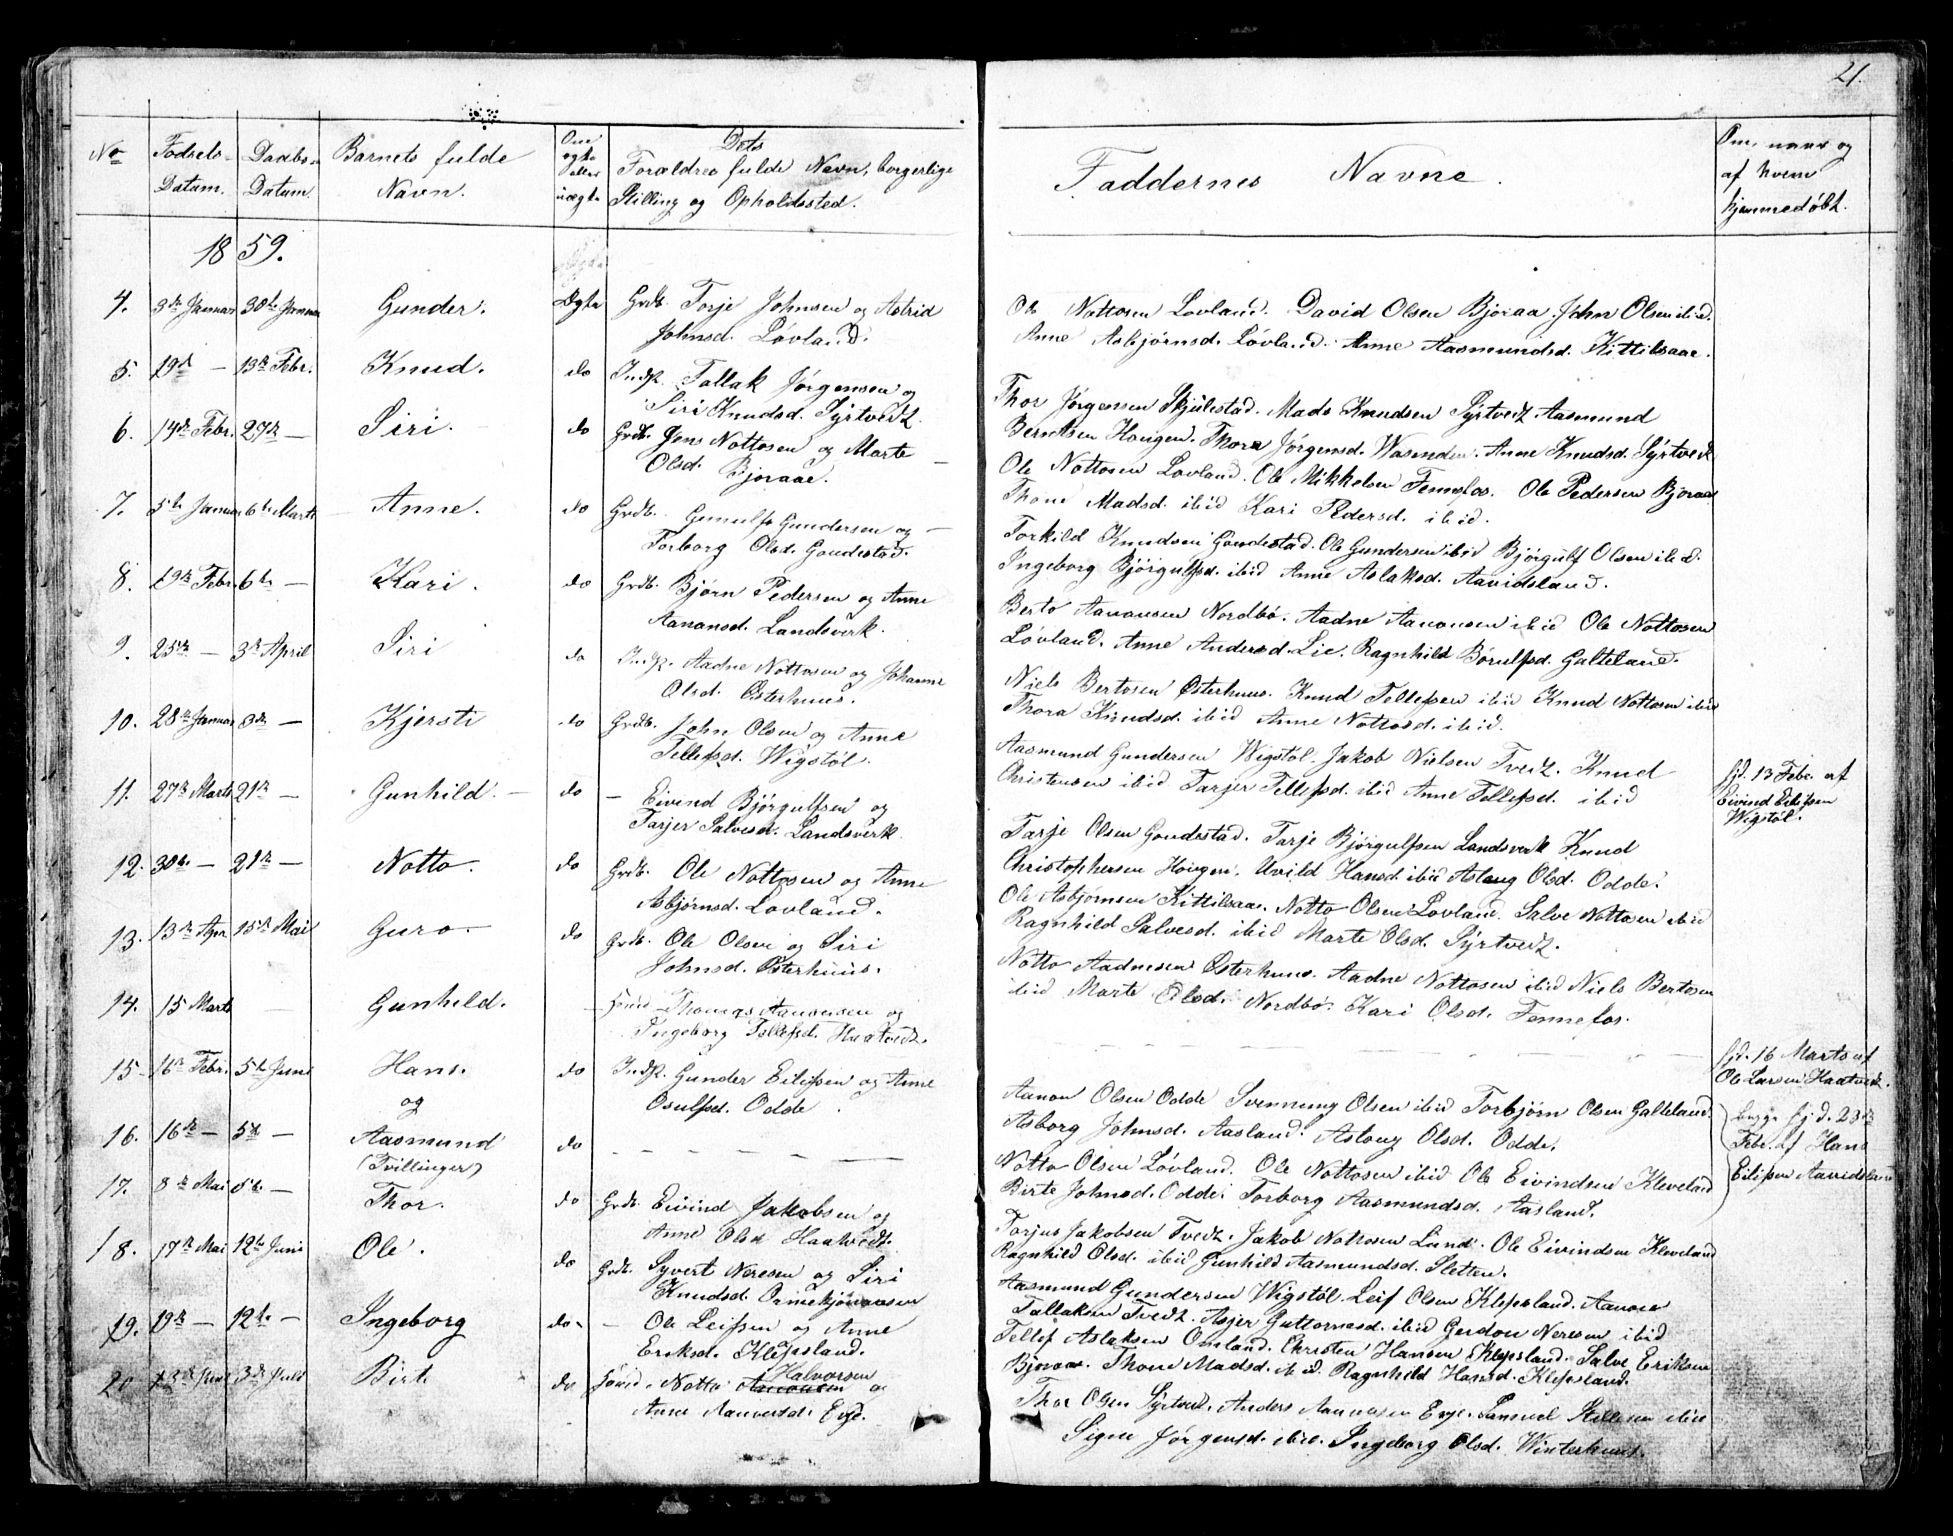 21.
No
Fødsels-
Datum.
Daabs-
Datum.
Barnets fulde
Navn.
Om
ægte
eller
uægte
Dets
Forældres fulde Navn, borgerlige
Stilling og Opholdssted.
Faddernes Navne.
Om, naar og
af hvem
hjemmedøbt.
1859.
4. 3de Januar 30te Januar Gunder. Ægte Grdb. Torje Johnsen og Astrid
Johnsd. Løvland.
Ole Nottosen Løvland. David Olsen Bjoraa. John Olsen ibid.
Anne Asbjørnsd. Løvland. Anne Aasmundsd. Kittilsaae.
5. 19de — 13de Febr. Knud. do Indst. Tallak Jørgensen og
Siri Knudsd. Syrtvedt.
Thor Jørgensen Skjulestad. Mads Knudsen Syrtvedt. Aasmund
Berntsen Hougen. Thora Jørgensd. Wasenden. Anne Knudsd. Syrtvedt.
6. 14de Febr. 27de — Siri. do Grdb. Jens Nottosen og Marte
Olsd. Bjoraae.
Ole Nottosen Løvland. Ole Mikkelsen Fennefos. Ole Pedersen Bjoraae
Thone Madsd. ibid Kari Pedersd. ibid.
7. 5te Januar 6te Marts Anne. do Grdb. Gunulf Gundersen og
Torborg Olsd. Goudestad.
Torkild Knudsen Goudestad. Ole Gundersen ibid Bjørgulf Olsen ibid.
Ingeborg Bjørgulfsd. ibid Anne Aslaksd. Aavidsland.
8. 19de Febr. 6te — Kari. do Grdb. Bjørn Pedersen og Anne
Aanonsd. Landsverk.
Berto Aanonsen Nordbø. Aadne Aanonsen ibid Ole Nottosen
Løvland. Anne Andersd. Lie. Ragnhild Børulfsd. Galteland.
9. 25de — 3de April Siri do Indst. Aadne Nottosen og Johanne
Olsd. Østerhuus.
Niels Bertosen Østerhuus. Knud Tellefsen ibid Knud Nottosen ibid
Thora Knudsd. ibid Anne Nottosd. ibid.
10. 28de Januar 3de — Kjersti do Grdb. John Olsen og Anne
Tellefsd. Wigstøl.
Aasmund Gundersen Wigstøl. Jakob Nielsen Tvedt. Knud
Christensen ibid Tarjer Tellefsd. ibid Anne Tellefsd. ibid
hjd. 13 Febr. af
Eivind Eilifsen
Wigstøl.
11. 27de Marts 21de — Gunhild. — do — Eivind Bjørgulfsen og
Tarjer Salvesd. Landsverk.
Tarje Olsen Goudestad. Tarje Bjørgulfsen Landsverk Knud
Christophersen Hougen. Uvild Hansd. ibid Aslaug Olsd. Odde.
12. 30te — 21de — Notto. do Grdb. Ole Nottosen og Anne
Asbjørnsd. Løvland.
Ole Asbjørnsen Kittilsaae. Notto Olsen Løvland. Salve Nottosen ibid
Ragnhild Salvesd. ibid Marte Olsd. Syrtvedt.
13. 13de Apr. 15de Mai Guro. do Grdb. Ole Olsen og Siri
Johnsd. Østerhuus.
Notto Aadnesen Østerhuus. Aadne Nottosen ibid Niels Bertosen
ibid Marte Olsd. Nordbø. Kari Olsd. Fennefos.
14. 15 Marts — Gunhild. Thomas Aanonsen og
Ingeborg Tellefsd. Haatvedt.
hjd. 16 Marts af
Ole Larsen Haatvedt.
15. 16de Febr. 5te Juni Hans. do Indst. Gunder Eilifsen og Anne
Osulfsd. Odde.
Aanon Olsen Odde Svenning Olsen ibid Torbjørn Olsen Galteland.
Asborg Johnsd. Aasland. Aslaug Olsd. Odde.
begge hjd. 23de
Febr. af Hans
Eilifsen Aavidsland
og
16. 16de — 5te — Aasmund
(Tvillinger) do — — — — —
Notto Olsen Løvland. Ole Nottosen ibid Ole Eivindsen Kleveland
Birte Johnsd. Odde. Torborg Aasmundsd. Aasland.
17. 8de Mai 5te — Thor. do Grdb. Eivind Jakobsen og
Anne Olsd Haatvedt.
Torjus Jakobsen Tvedt. Jakob Nottosen Lund. Ole Eivindsen Kleveland
Ragnhild Olsd. ibid Gunhild Aasmundsd. Sletten.
18. 17de Mai 12te Juni Ole. do Grdb. Syvert Neresen og Siri
Knudsd.
Aasmund Gundersen Wigstøl. Leif Olsen Klepsland. Aanon
Tallaksen Tvedt. Asjer Guttormsd. ibid Gerdou Neresen ibid
19. 19de — 12te — Ingeborg do — Ole Leifsen og Anne
Eriksd. Klepsland.
Tellef Aslaksen Omland. Christen Hansen Klepsland. Salve Eriksen
Bjoraae. Thone Madsd. ibid. Ragnhild Hansd. Klepsland.
20 3de Juli Birte do Notto Aanonsen Halvorsen og
Anne Evje.
Thor Olsen Syrtvedt. Anders Evje. Samuel ibid
Signe Jørgensd. ibid. Ingeborg Olsd. Winterhuus.